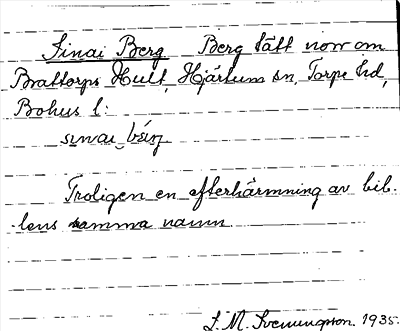 Sinai Berg Berg tätt norr om
Brattorps Hult, Hjärtum sn, Torpe hd,
Bohus l:
sinai_bärj
Troligen en efterhärmning av bib-
lens samma namn
S. M. Svenungson. 1935.